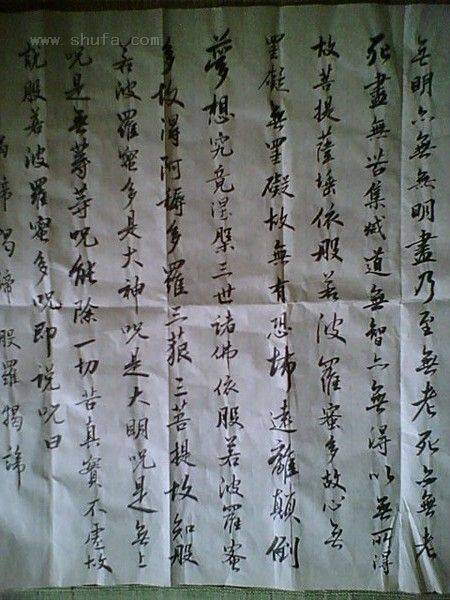 www.shufa.com
无明亦無無明盡乃至無老死亦無老
死盡無苦集滅道無智亦無得以無所得
故菩提薩埵依般若波羅蜜多故心無
罣礙無罣礙故無有恐怖遠離顛倒
夢想究竟涅槃三世諸佛依般若波羅蜜
多故得阿耨多羅三藐三菩提故知般
若波羅蜜多是大神呪是大明呪是無上
呪是無等等呪能除一切苦真實不虛故
說般若波羅蜜多呪即說呪曰
揭諦揭諦般羅揭諦